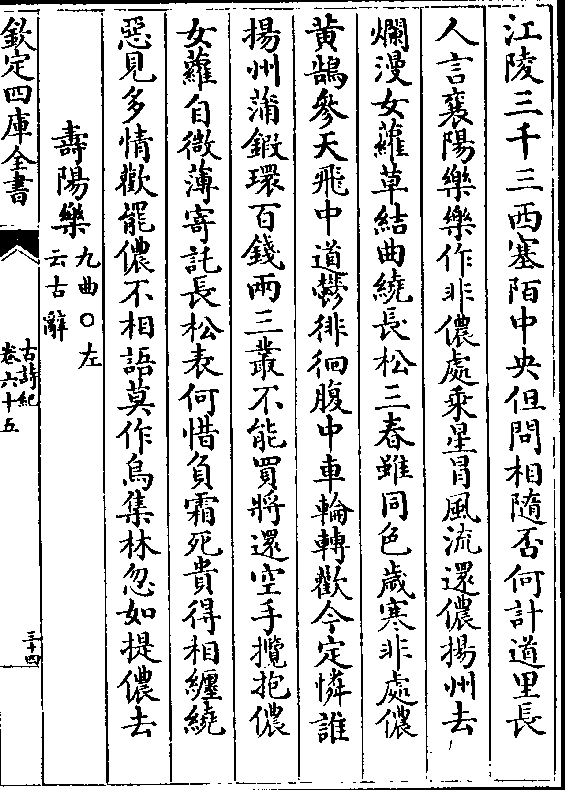 江陵三千三西塞陌中央但問相隨否何計道里長
人言襄陽樂樂作非儂處乘星冒風流還儂揚州去
爛漫女蘿草結曲繞長松三春雖同色歲寒非處儂
黃鵠參天飛中道鬱徘徊腹中車輪轉歡今定憐誰
揚州蒲鍛環百錢兩三叢不能買將還空手攬抱儂
女蘿自微薄寄託長松表何惜負霜死貴得相纏繞
惡見多情歡罷儂不相語莫作烏集林忽如提儂去
壽陽樂九曲〇左云古辭
欽定四庫全書
古詩紀
卷六十五
三十四